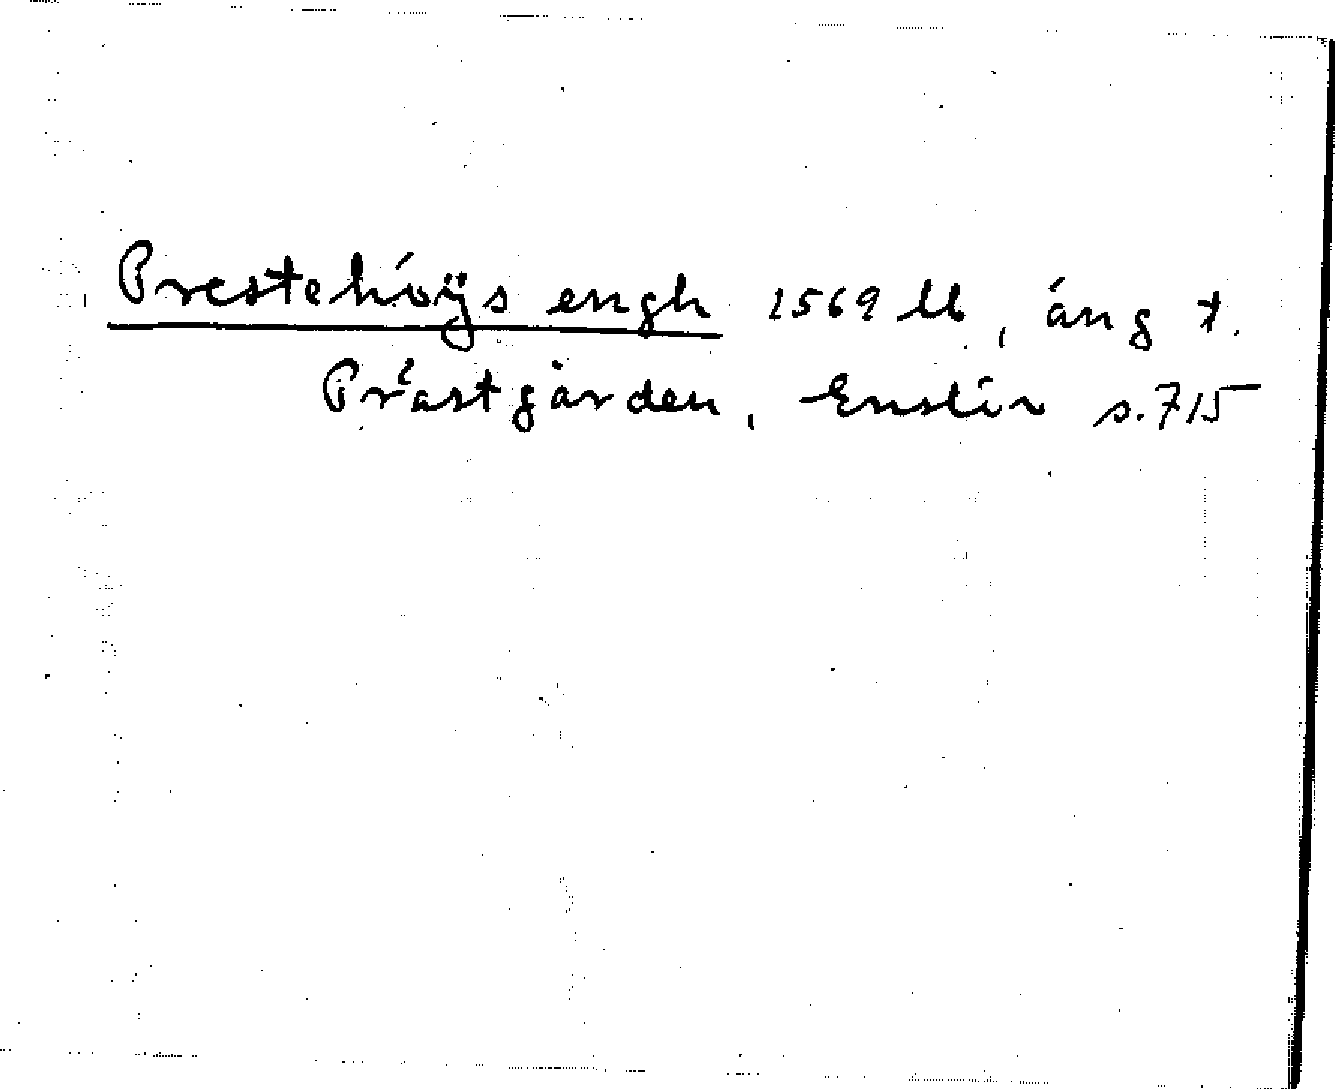 Prestehöÿs engh 1569 lb, äng t.
Prästgården, Enslöv s.715